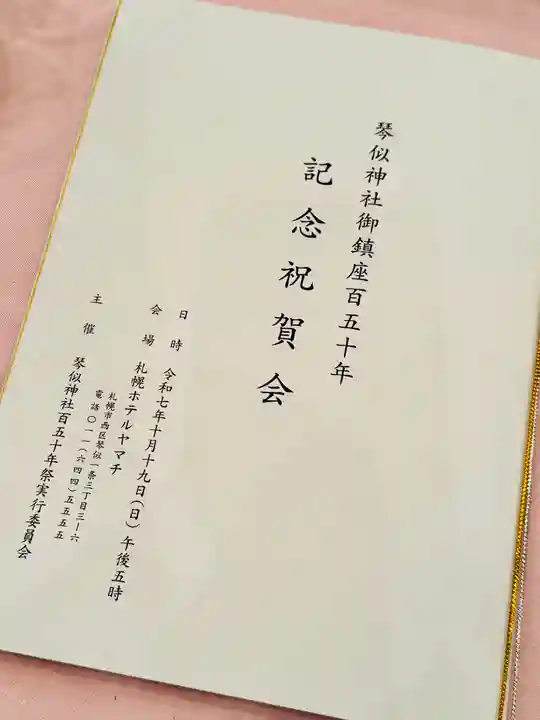 琴似神社御鎮座百五十年
記念祝賀会
日時 令和七年十月十九日(日)午後五時
会場 札幌ホテルヤマチ
札幌市西区琴似一条三丁目三ー六
電話〇一一(六四四)五五五五
主催 琴似神社百五十年祭実行委員会